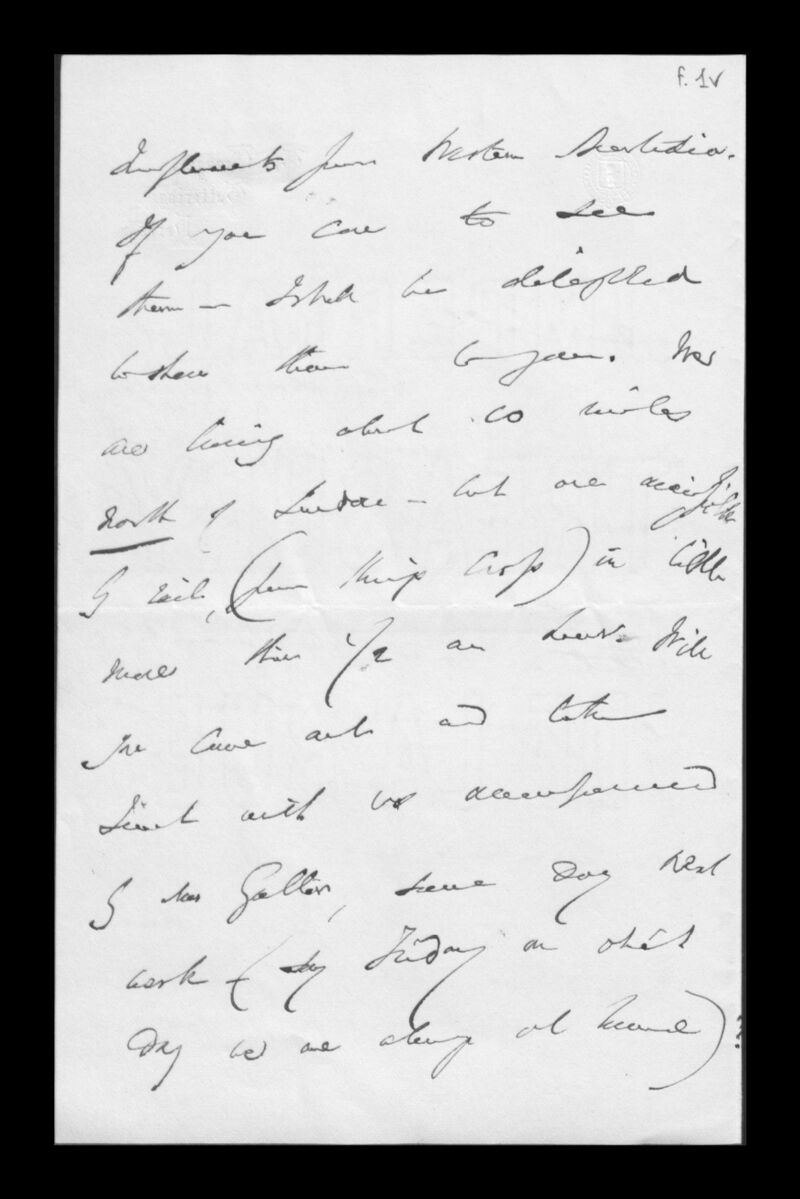 f. 1v
Implements from Western Australia.
If you care to see
them – I shall be delighted
to show them to you. We
are living about 20 miles
north of London – but are accessible
by rail, (from Kings Cross) in little
more than 1/2 an hour. Will
you come and take
lunch with us accompanied
by Mrs Galton, some day next
week – (say Friday on which
day we are always at home)